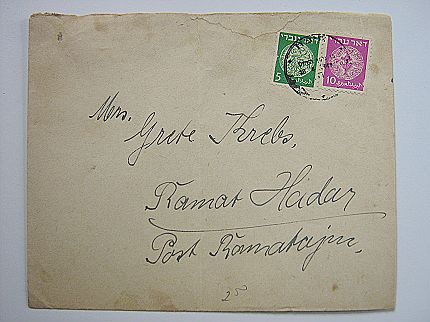 דאר עברי דאר עברי
5 10
Mrs. Grete Krebs,
Ramat Hadar
Post Ramatajim,
25